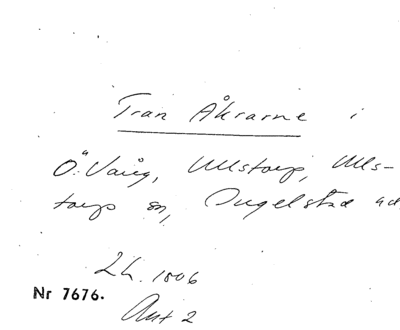 Tran Åkrarne i
Ö. Vång, Ullstorp, Ulls-
torps sn, Ingelstad
L.h. 1806
Nr 7676.
Akt 2